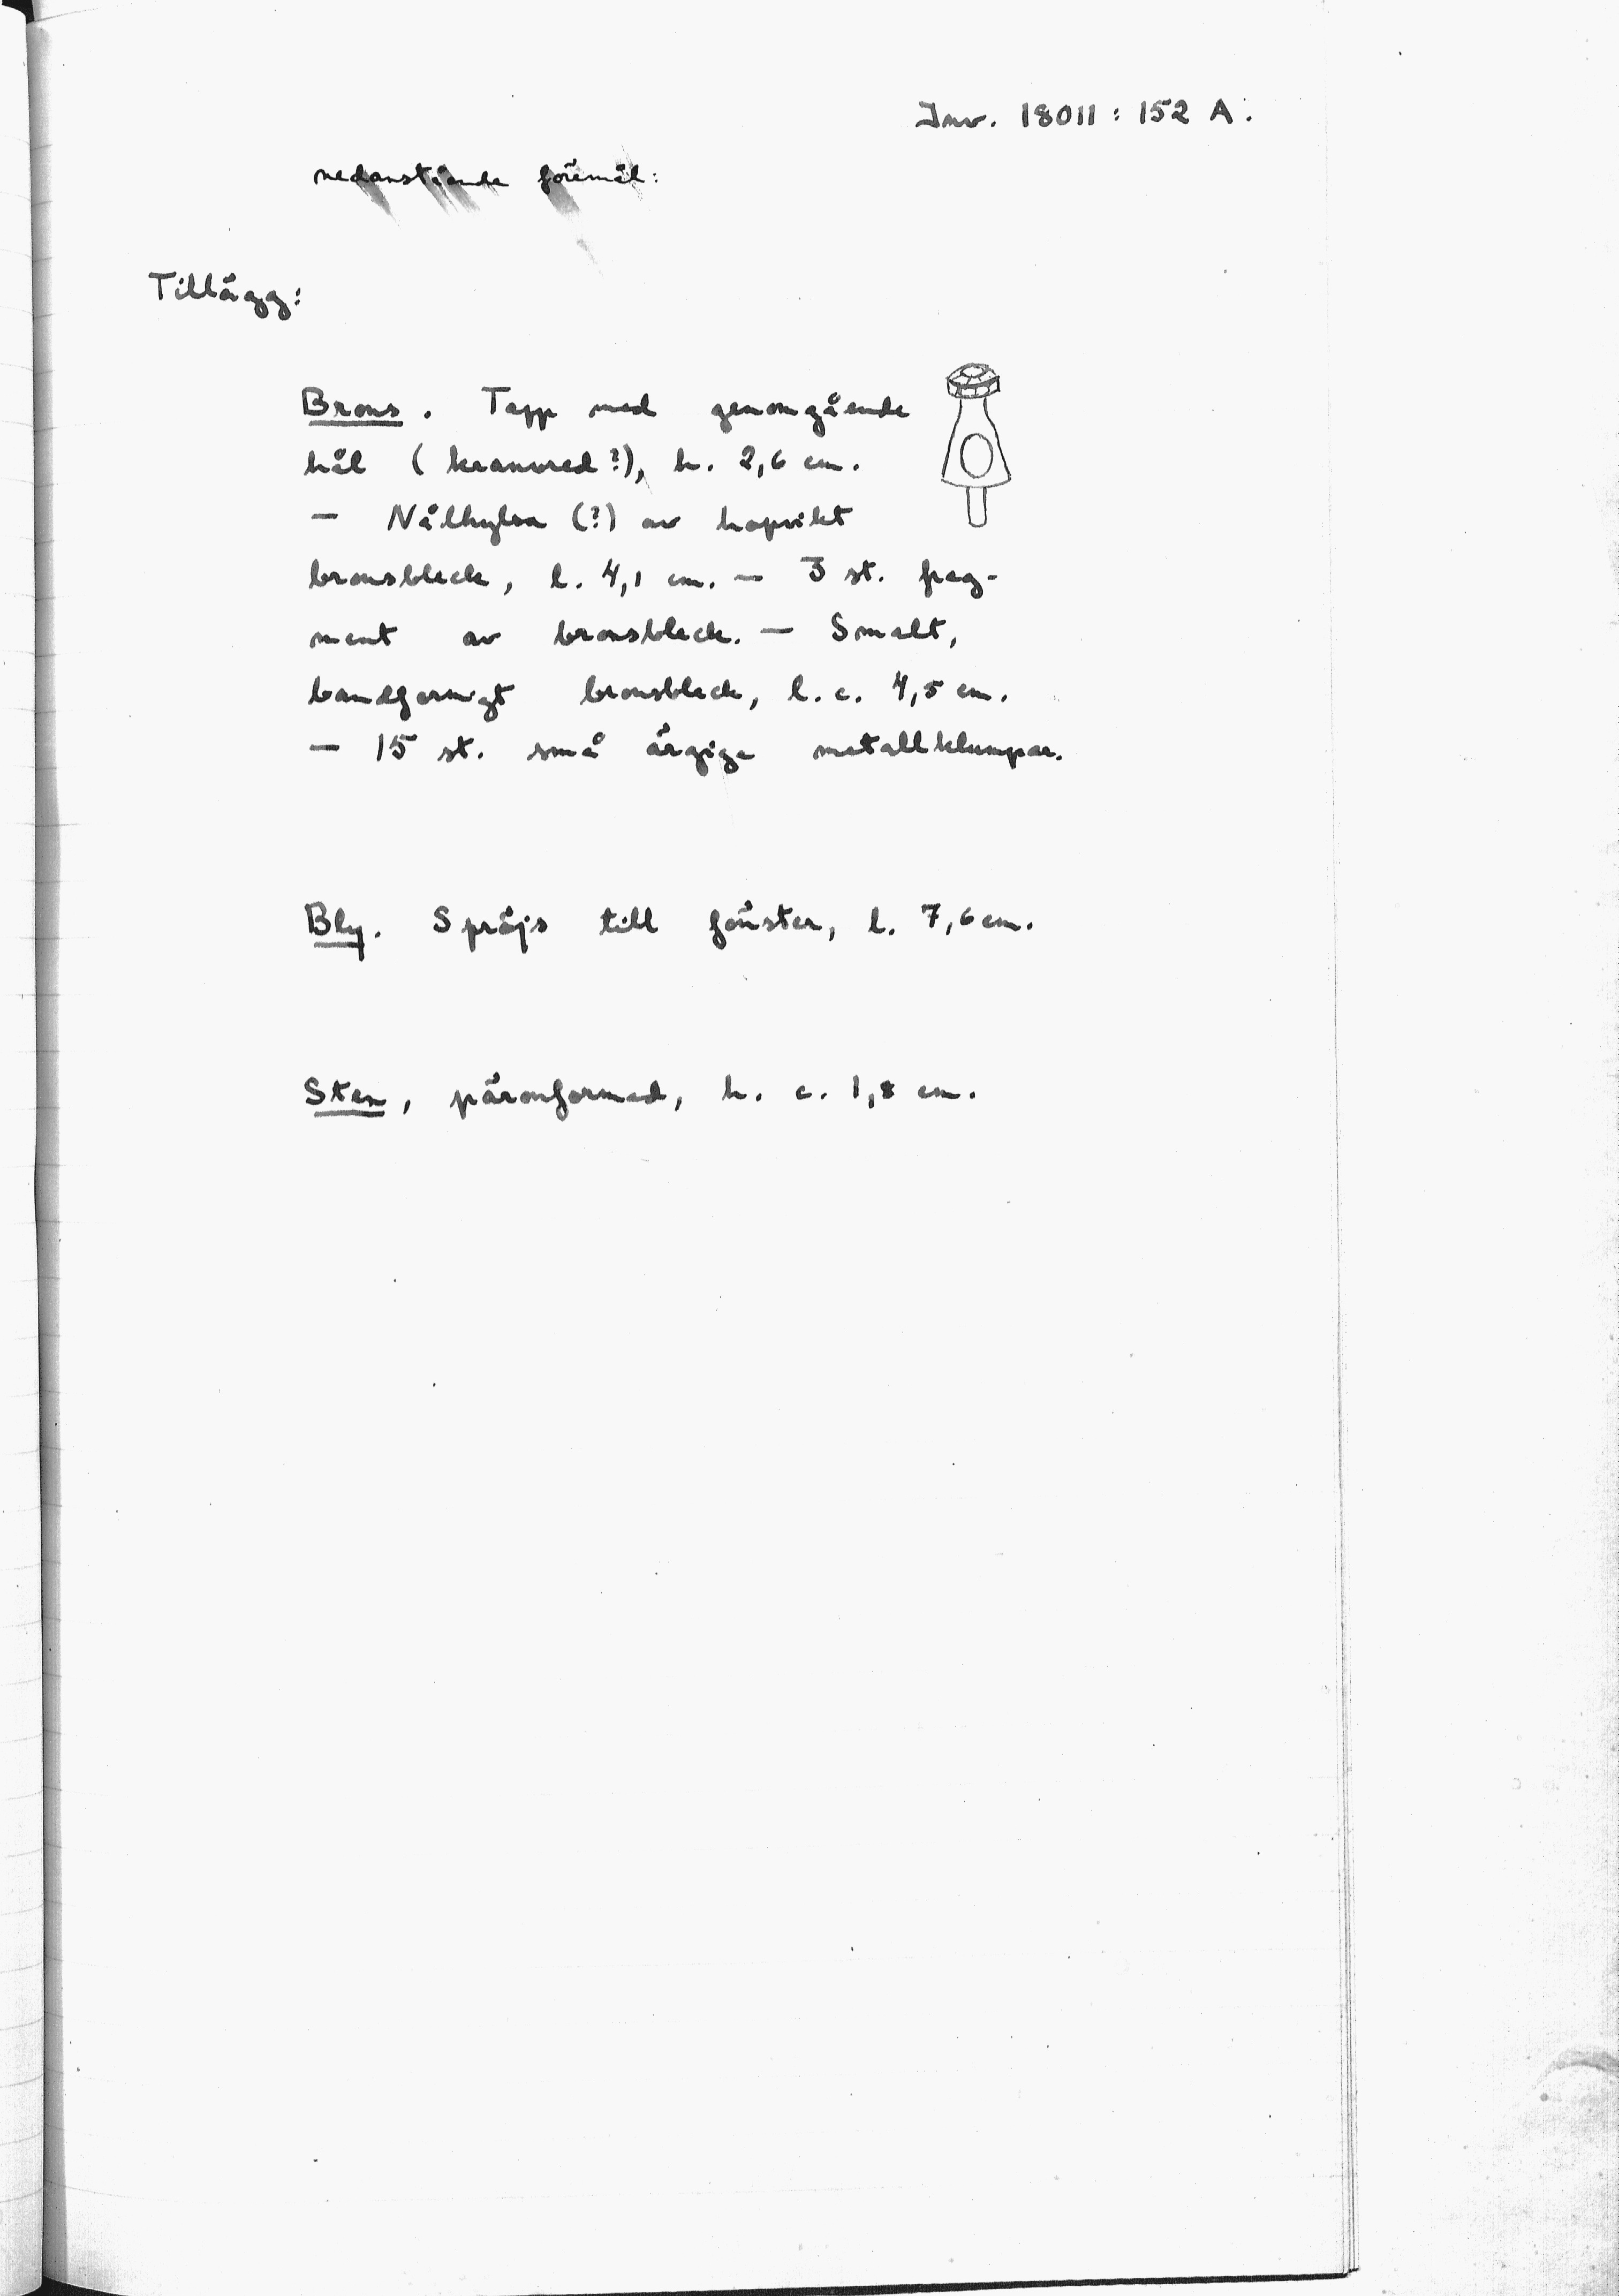 Inv. 18011 : 152 A.
nedanstående föremål:
Tillägg:
Brons. Tapp med genomgående
hål (kranvred?), h. 2,6 cm.
— Nålhylsa (?) av hopvikt
bronsbleck, l. 4,1 cm. — 3 st. frag-
ment av bronsbleck. — Smalt,
bandformigt bronsbleck, l. c. 4,5 cm.
— 15 st. små ärgiga metallklumpar.
Bly. Spröjs till fönster, l. 7,6 cm.
Sten, päronformad, h. c. 1,8 cm.